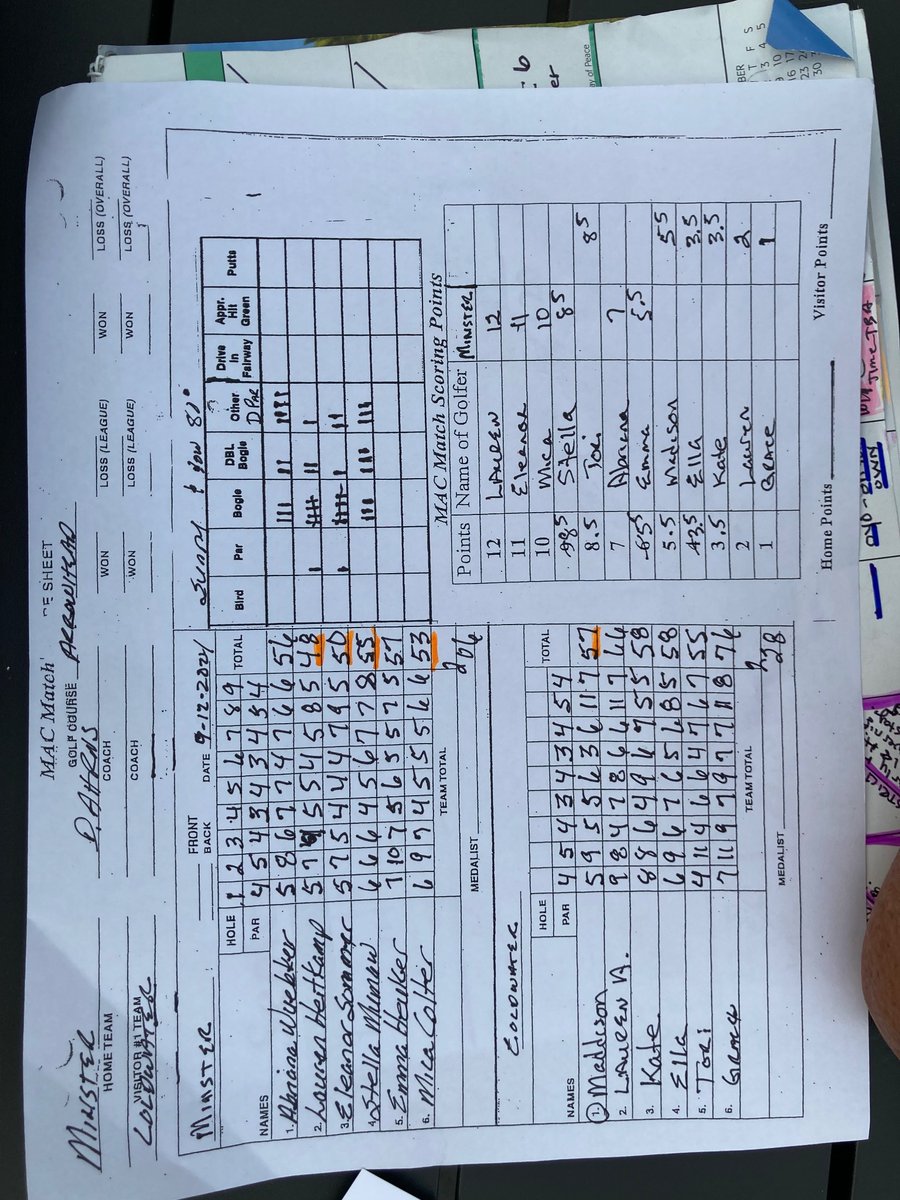 MAC Match
GOLF COURSE ARROWHEAD
MINSTER D. AHRNS
HOME TEAM COACH WON LOSS (LEAGUE) WON LOSS (OVERALL)
VISITOR #1 TEAM COACH WON LOSS (LEAGUE) WON LOSS (OVERALL)
COLDWATER
MINSTER FRONT BACK DATE 9-12-2024 SUNNY 80°
HOLE 1 2 3 4 5 6 7 8 9 TOTAL
PAR 4 5 4 3 4 3 4 5 4
NAMES
1. 5 8 6 7 7 4 7 6 6 56
2. Lauren Hertkamp 5 7 5 5 4 5 8 5 48
3. Eleanor Sommer 5 7 5 4 4 4 7 9 5 50
4. Stella 6 6 6 4 5 6 7 7 8 55
5. Emma 7 10 7 5 6 5 5 7 5 57
6. Mica 6 9 7 4 5 5 5 6 6 53
TEAM TOTAL 206
MEDALIST
Bird Par Bogie DBL Bogie Other Drive in Fairway Appr. Hit Green Putts
D PAR
COLDWATER
HOLE TOTAL
PAR 4 5 4 3 4 3 4 5 4
NAMES
1. Maddison 5 9 5 5 6 3 6 11 7 57
2. LAUREN 9 8 4 7 8 6 6 11 7 66
3. Kate 8 8 6 4 9 6 7 5 5 58
4. Ella 6 9 6 7 6 5 6 8 5 58
5. TORI 4 11 4 6 6 4 7 6 7 55
6. GRACE 7 11 9 7 9 7 7 11 8 76
TEAM TOTAL 228
MEDALIST
MAC Match Scoring Points
Points Name of Golfer MINSTER
12 LAUREN 12
11 Eleanor 11
10 Mica 10
8.5 Stella 8.5
8.5 Tori 8.5
7 7
Emma 5.5
5.5 Madison 5.5
3.5 Ella 3.5
3.5 Kate 3.5
2 Lauren 2
1 Grace 1
Home Points Visitor Points